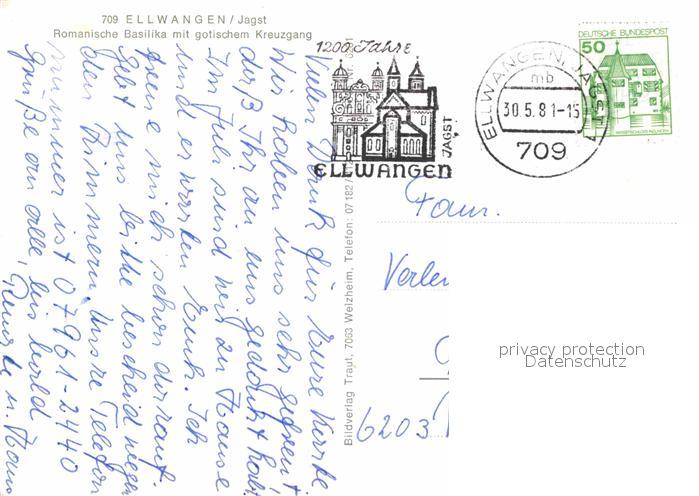 709 ELLWANGEN / Jagst
Romanische Basilika mit gotischem Kreuzgang
Vielen Dank für Eure Karte
Wir haben uns sehr gefreut
daß Ihr an uns gedacht habt.
Im Juli sind wir zu Hause
und erwarten Euch. Ich
freue mich schon darauf.
Gebt uns bitte bescheid wegen
den Zimmern. Unsre Telefon
nummer ist 07961-2440
Grüße an alle, bis bald
1200 Jahre
ELLWANGEN
JAGST
ELLWANGEN, JAGST
mb
30.5.81-15
709
DEUTSCHE BUNDESPOST
50
Bildverlag Traut, 7063 Welzheim, Telefon: 07182/
Fam.
6203
privacy protection
Datenschutz